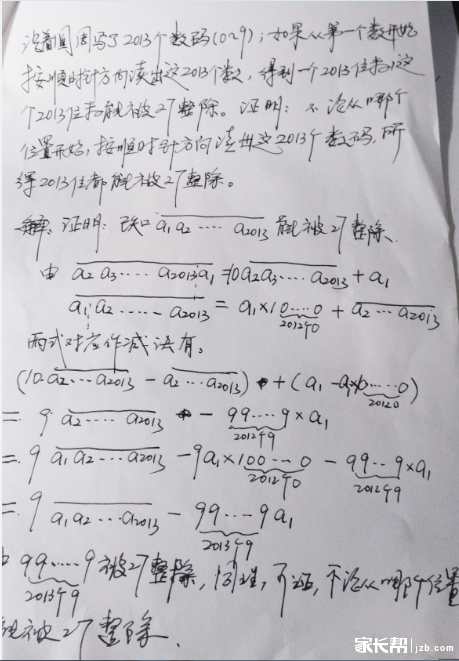 沿着圆周写了2013个数码(0~9);如果从第一个数开始
按顺时针方向读出这2013个数,得到一个2013位数,这
个2013位数能被27整除。证明:不论从哪个
位置开始,按顺时针方向读出这2013个数码,所
得2013位都能被27整除。
解:证明:已知 \overline{a₁a₂……a₂₀₁₃} 能被27整除、
由 \overline{a₂a₃……a₂₀₁₃a₁} = 10\overline{a₂a₃……a₂₀₁₃} + a₁
\overline{a₁a₂……a₂₀₁₃} = a₁×10…0 + \overline{a₂…a₂₀₁₃}
2012个0
两式对应作减法有,
(10·\overline{a₂…a₂₀₁₃} − \overline{a₂…a₂₀₁₃}) + (a₁ − a₁×10……0)
20120
= 9·\overline{a₂……a₂₀₁₃} − 99……9×a₁
2012个9
= 9\overline{a₁a₂…a₂₀₁₃} − 9a₁×100…0 − 99…9×a₁
2012个0 2012个9
= 9\overline{a₁a₂…a₂₀₁₃} − 99…9a₁
2013个9
99……9被27整除,同理,可证,不论从哪个位置
2013个9
能被27整除.
家长帮 jzb.com